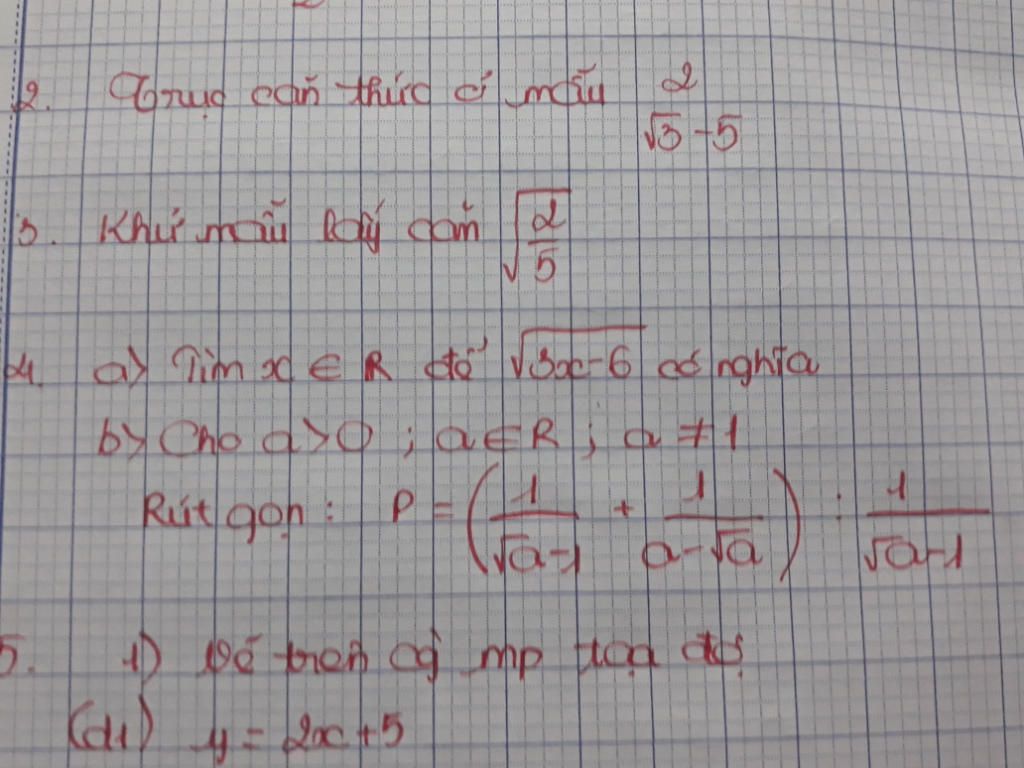 2. Trục căn thức ở mẫu 2/(√3-5)
3. Khử mẫu lấy căn √(2/5)
4. a) Tìm x ∈ R để √(3x-6) có nghĩa
b) Cho a>0 ; a∈R ; a≠1
Rút gọn: P = (1/(√a-1) + 1/(a-√a)) : 1/(√a-1)
5. 1) Vẽ trên cg mp tọa độ
(d1) y = 2x+5